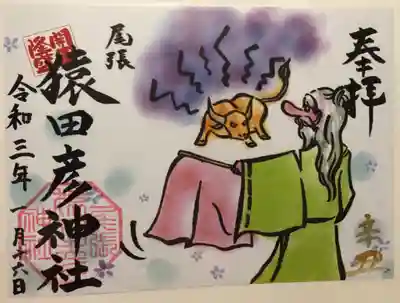 奉拝
尾張
猿田彦神社
令和三年一月十六日
辛丑